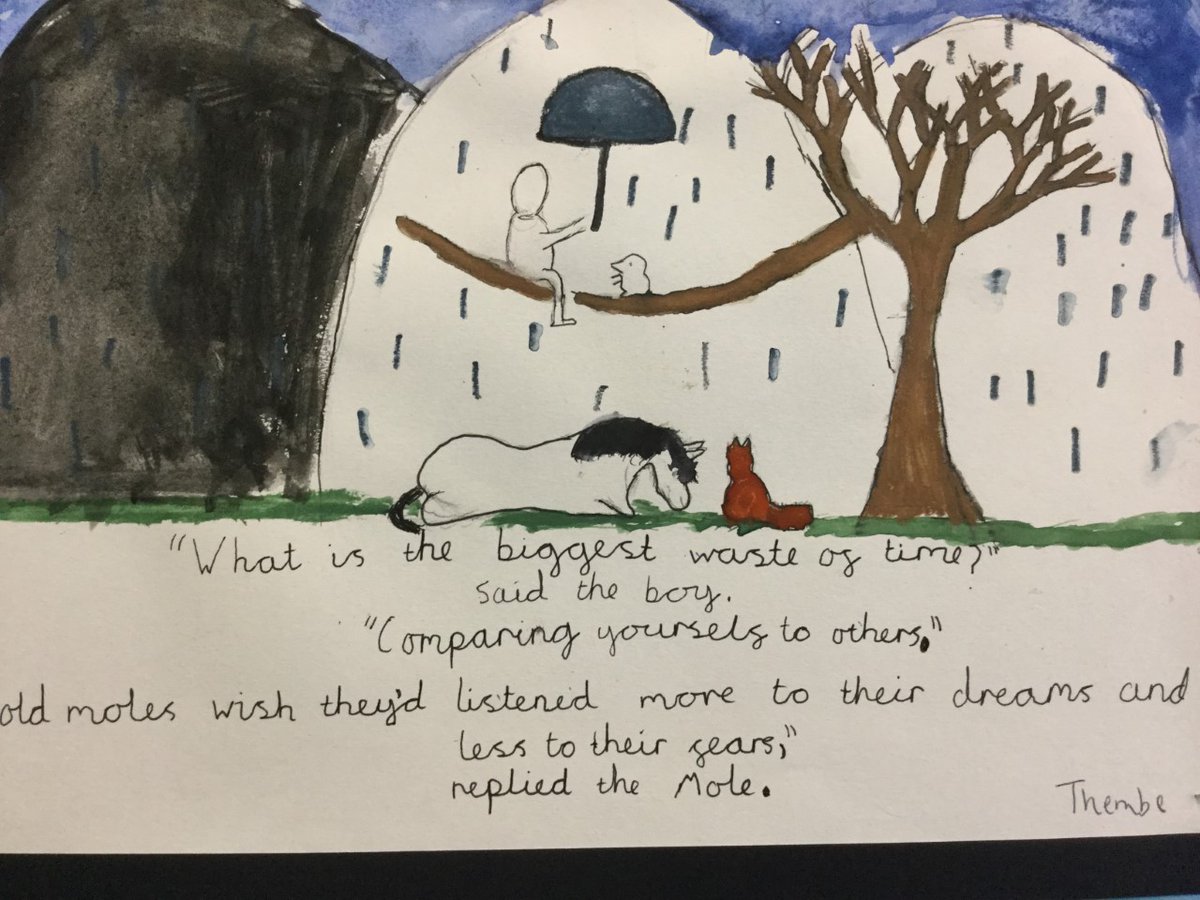 "What is the biggest waste of time?"
said the boy.
"Comparing yourself to others,"
old moles wish they'd listened more to their dreams and
less to their fears,"
replied the Mole.
Thembe